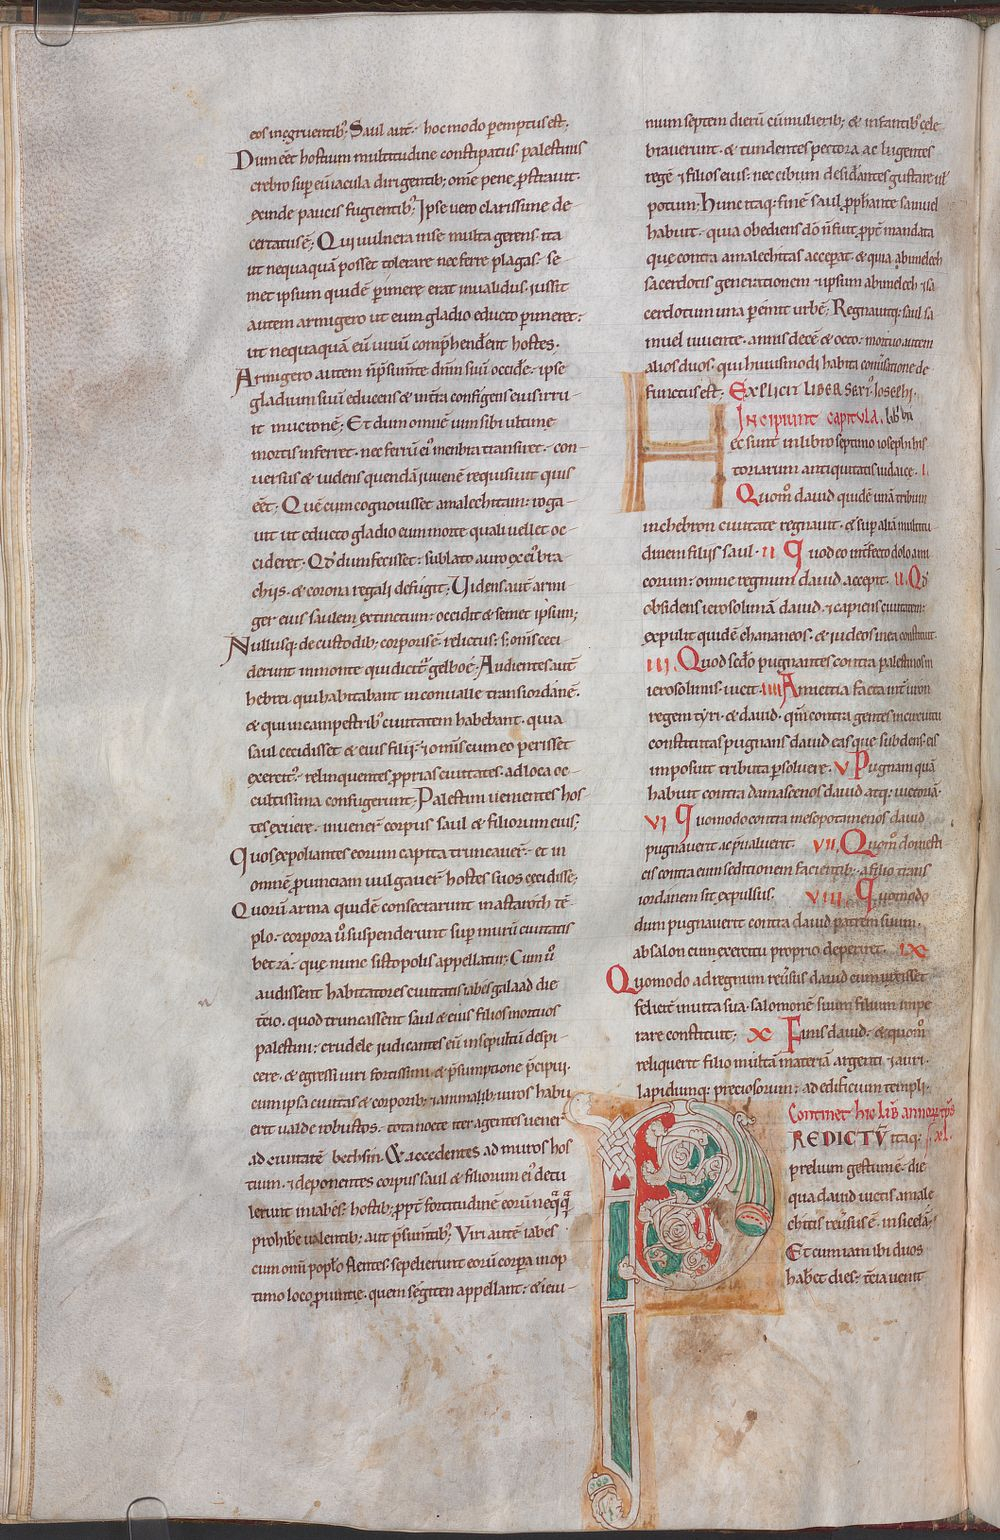 eos incgruentib; Saul aut̃ hoc modo p̃emptus est;
Dum eēt hostium multitudine constipatus palestinis
crebro sup eū iacula dirigentib; om̃e pene p̃strauit.
exinde paucis fugientib; Ipse uero clarissime de-
certatus ē; Qui uulnera in se multa gerens ita
ut nequaquā posset tolerare nec ferre plagas. se-
met ipsum quidē pimere erat inualidus. iussit
autem armigero ut eum gladio educto pimeret:
ut nequaquā eū uiuū comp̃henderent hostes.
Armigero autem n̄ p̃sumente dn̄m suū occidere. ipse
gladium suū educens & cont̃ra configens eius irru-
it mucronē; Et dum omnē uim sibi ultime
mortis inferret. nec ferrū ei' menbra transiret. con-
uersus & uidens quendā iuuenē requisiuit quis
eēt; Quē cum cognouisset amalechitam: roga-
uit ut educto gladio eum morte quali uellet oc-
cideret. Qd̄ dum fecisset: sublato auro ex ei' bra-
chiis. & corona regali defugit; Uidens aut̃ armi
ger eius saulem extinctum: occidit & semet ipsum;
Nullusq; de custodib; corporis ē relictus: s; om̄s ceci-
derunt in monte qui dicit̃ gelboe; Audientes aut̃
hebrei qui habitabant in conualle trans iordanē.
& qui in campestrib; ciuitatem habebant. quia
saul cecidisset & eius filii: & om̄is cum eo perisset
exercit'. relinquentes pprias ciuitates. ad loca oc-
cultissima confugerunt; Palestini uenientes hos
tes exuere. inuener̃ corpus saul & filiorum eius;
Quos expoliantes eorum capita truncauer̃. et in
omnē prouinciam uulgauer̃ hostes suos cecidisse;
Quorū arma quidē consecrarunt in astaroth tē-
plo. corpora ū suspenderunt sup murū ciuitatis
betzā. que nunc sistopolis appellatur; Cum ū
audissent habitatores ciuitatis iabes galaad die
t̃cio. quod truncassent saul & eius filios mortuos
palestini: crudele iudicantes eū insepultū despi-
cere. & egressi uiri fortissimi & p̃sumptione p̃cipui.
cum ipsa ciuitas & corporib; & animalib; uiros habu
erit ualde robustos. tota nocte iter agentes uener̃
ad ciuitatē bethsan. & accedentes ad muros hos
tium. & deponentes corpus saul & filiorum ei' detu
lerunt in iabes. hostib; ppt̃ fortitudinē eorū neq̃q̃
prohib&e ualentib; aut p̃sumtib; Viri autē iabes
cum om̄i poplo flentes. sepelierunt eorū corpora in op
timo loco prouintie. quem segiten appellant: & ieiu-
nium septem dierū cū mulierib; & infantib' cele
brauerunt. & tundentes pectora ac lugentes
regē & filios eius: nec cibum desiderantes gustare ul'
potum; Hunc itaq; finē saul pphetante samuel
habuit. quia obediens dō n̄ fuit ppt̃ mandata
que contra amalechitas acceperat. & quia abimelech
sacerdotis generationem & ipsum abimelech & sa
cerdotum una peremit urbē; Regnauitq; saul sa
muel uiuente. annis decē & octo. mortuo autem
alios duos. qui huiusmodi habita conuersatione de
functus est; EXPLICIT LIBER SEXT' Iosephi.
INCIPIUNT capitula. lib' vii
Hec sunt in libro septimo iosephi his
toriarum antiquitatis iudaice. I
Quom̊ dauid quidē unā tribum
in hebron ciuitate regnauit. & sup aliā multitu
dinem filiis saul. II Quod eo int̃fecto dolo ami
corum: omne regnum dauid accepit. II. Qd̄
obsidens ierosolimā dauid. & capiens ciuitatem:
expulit quidē chananeos. & iudeos in ea constituit.
III. Quod secd̄o pugnantes contra palestinos in
ierosolimis uicit. IIII Amicitia facta int̃ iron
regem tyri. & dauid. qm̃ contra gentes incircuitu
constitutas pugnans dauid eas que subdens. eis
imposuit tributa psoluere. V Pugnam quā
habuit contra damascenos dauid atq; uictoriā.
VI Quomodo contra mesopotamenos dauid
pugnauerit ac p̃ualuerit. VII. Quom̊ domesti
cis contra eum seditionem facientib; a filio trans
iordanem sit expulsus. VIII. Quomodo
dum pugnauerit contra dauid patrem suum.
absalon cum exercitu proprio deperiret. IX
Quomodo ad regnum reuersus dauid cum uixisset
felicit̃ in uita sua. salomonē suum filium impe
rare constituit; X Finis dauid. & quom̊
reliquerit filio multā materiā argenti & auri.
lapidumq; preciosorum: ad edificium templi.
Continet hic lib' annorū tp's
PREDICTŪ itaq; xl.
prelium gestum ē. die
qua dauid uictis amale
chitis reuersus ē. in sicelā;
Et cum iam ibi duos
haberet dies: t̃cia uenit